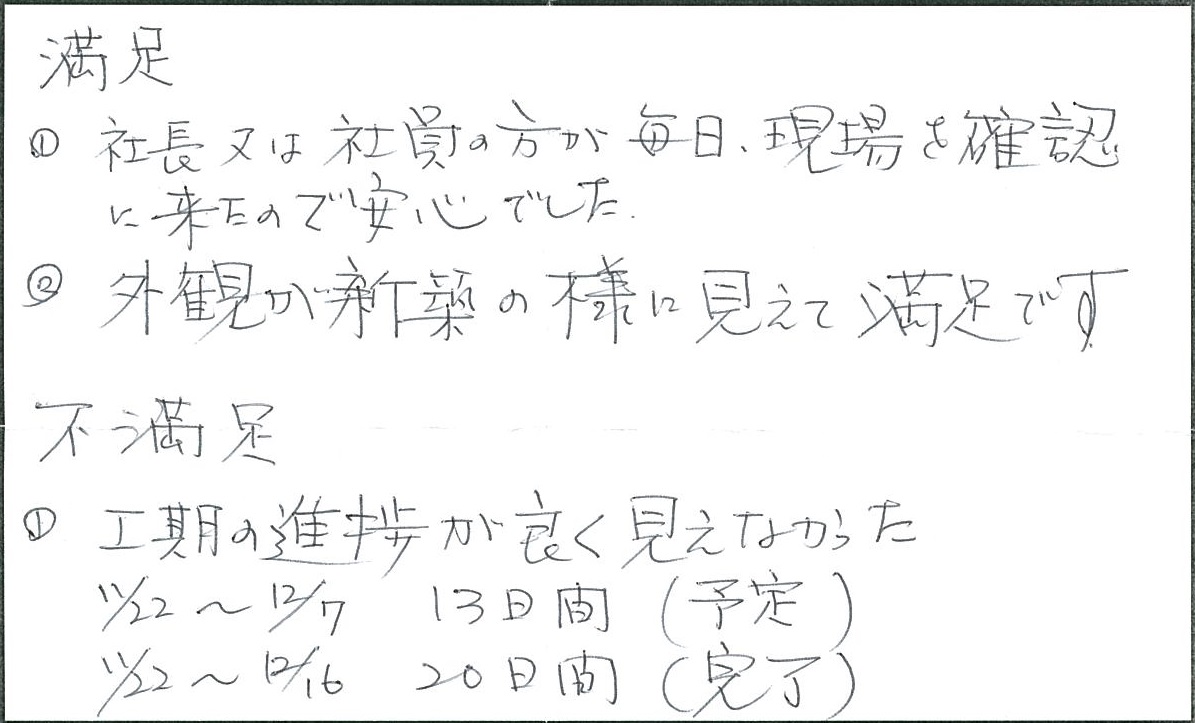 満足
① 社長又は社員の方が毎日、現場を確認
に来たので安心でした。
② 外観が新築の様に見えて満足です
不満足
① 工期の進捗が良く見えなかった
11/22～12/7 13日間(予定)
11/22～12/16 20日間(完了)